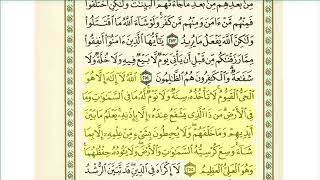 مِنۢ بَعْدِهِم مِّنۢ بَعْدِ مَا جَآءَتْهُمُ ٱلْبَيِّنَٰتُ وَلَٰكِنِ ٱخْتَلَفُوا۟
فَمِنْهُم مَّنْ ءَامَنَ وَمِنْهُم مَّن كَفَرَ وَلَوْ شَآءَ ٱللَّهُ مَا ٱقْتَتَلُوا۟
وَلَٰكِنَّ ٱللَّهَ يَفْعَلُ مَا يُرِيدُ ٢٥٣ يَٰٓأَيُّهَا ٱلَّذِينَ ءَامَنُوٓا۟ أَنفِقُوا۟
مِمَّا رَزَقْنَٰكُم مِّن قَبْلِ أَن يَأْتِىَ يَوْمٌ لَّا بَيْعٌ فِيهِ وَلَا خُلَّةٌ وَلَا
شَفَٰعَةٌ وَٱلْكَٰفِرُونَ هُمُ ٱلظَّٰلِمُونَ ٢٥٤ ٱللَّهُ لَآ إِلَٰهَ إِلَّا هُوَ
ٱلْحَىُّ ٱلْقَيُّومُ لَا تَأْخُذُهُۥ سِنَةٌ وَلَا نَوْمٌ لَّهُۥ مَا فِى ٱلسَّمَٰوَٰتِ وَمَا
فِى ٱلْأَرْضِ مَن ذَا ٱلَّذِى يَشْفَعُ عِندَهُۥٓ إِلَّا بِإِذْنِهِۦ يَعْلَمُ مَا بَيْنَ
أَيْدِيهِمْ وَمَا خَلْفَهُمْ وَلَا يُحِيطُونَ بِشَىْءٍ مِّنْ عِلْمِهِۦٓ إِلَّا بِمَا
شَآءَ وَسِعَ كُرْسِيُّهُ ٱلسَّمَٰوَٰتِ وَٱلْأَرْضَ وَلَا يَـُٔودُهُۥ حِفْظُهُمَا
وَهُوَ ٱلْعَلِىُّ ٱلْعَظِيمُ ٢٥٥ لَآ إِكْرَاهَ فِى ٱلدِّينِ قَد تَّبَيَّنَ ٱلرُّشْدُ